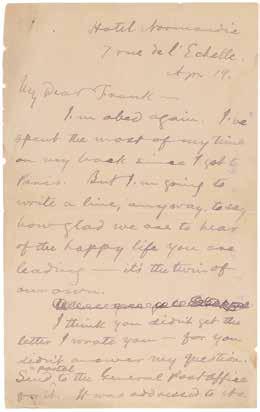 Hotel Normandie
7 rue de l'Echelle.
Apr 19.
My Dear Frank—
I'm abed again. I've
spent the most of my time
on my back since I got to
Paris. But I'm going to
write a line, anyway, to say
how glad we are to hear
of the happy life you are
leading — it's the twin of
our own.
I think you didn't get the
letter I wrote you — for you
didn't answer my question.
Send a postal to the General Post Office
for it. It was addressed to